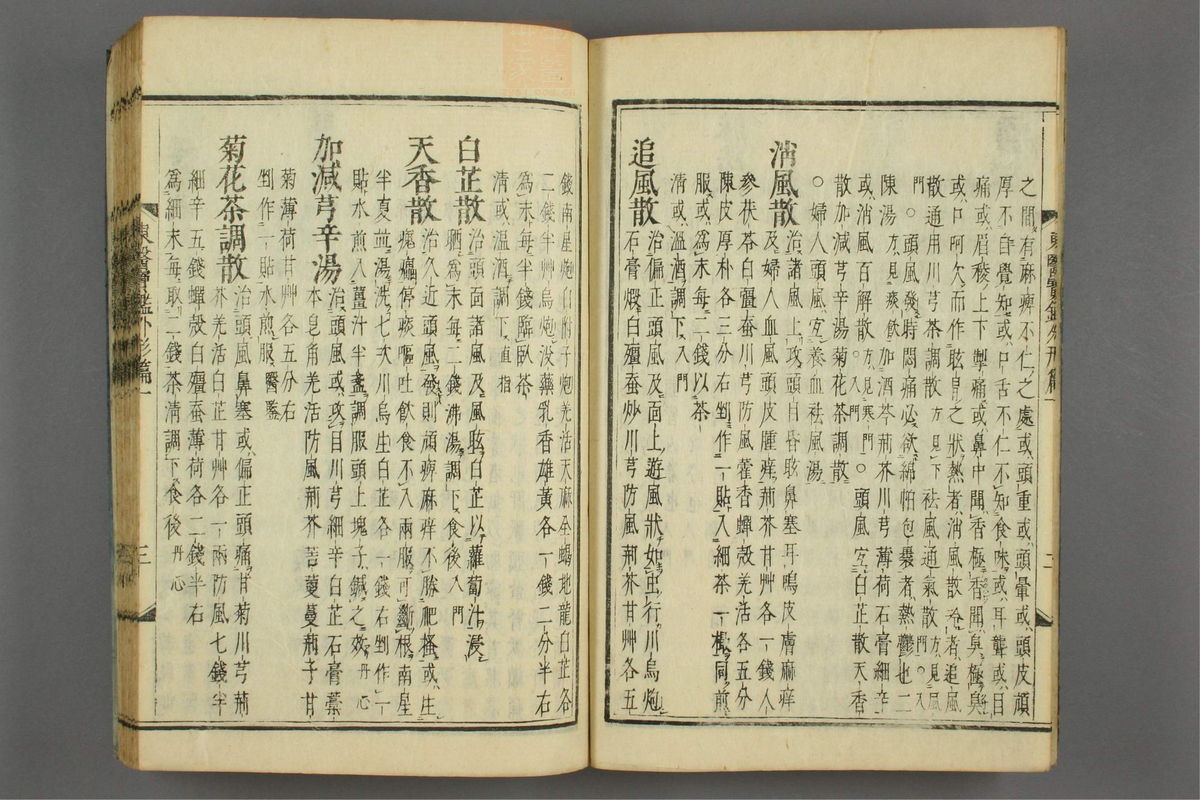 之間有麻痺不仁之處或頭重或頭暈或頭皮頑
厚不自覺知或口舌不仁不知食味或耳聾或目
痛或眉稜上下掣痛或鼻中聞香極香聞臭極臭
或口呵欠而作眩冒之狀熱者消風散冷者追風
散通用川芎茶調散方見下祛風通氣散方見風
門○頭風發時悶痛必欲綿帕包裹者熱鬱也二
陳湯方見痰飮加酒芩荊芥川芎薄荷石膏細辛
或消風百解散方見寒門○入門○頭風宜白芷散天香
散加減芎辛湯菊花茶調散
○婦人頭風宜養血祛風湯
消風散治諸風上攻頭目昏眩鼻塞耳鳴皮膚麻痒
及婦人血風頭皮腫痒荊芥甘艸各一錢人
參茯苓白殭蚕川芎防風藿香蟬殼羌活各五分
陳皮厚朴各三分右剉作一貼入細茶一撮同煎
服或爲末每二錢以茶
清或溫酒調下入門
追風散治偏正頭風及面上遊風狀如虫行川烏炮
石膏煆白殭蚕炒川芎防風荊芥甘艸各五
錢南星炮白附子炮羌活天麻全蝎地龍白芷各
二錢半艸烏炮沒藥乳香雄黃各一錢二分半右
爲末每半錢臨臥茶
清或溫酒調下直指
白芷散治頭面諸風及風眩白芷以蘿蔔汁浸
晒爲末每二錢沸湯調下食後入門
天香散治久近頭風發則頑痺麻痒不勝肥搔或生
瘣㿔停痰嘔吐飮食不入兩服可斷根南星
半夏並湯洗七次川烏生白芷各一錢右剉作一
貼水煎入薑汁半盞調服頭上塊子鍼之效丹心
加減芎辛湯治頭風或攻目川芎細辛白芷石膏藁
本皂角羌活防風荊芥莟蔓蔓荊子甘
菊薄荷甘艸各五分右
剉作一貼水煎服醫鑑
菊花茶調散治頭風鼻塞或偏正頭痛甘菊川芎荊
芥羌活白芷甘艸各一兩防風七錢半
細辛五錢蟬殼白殭蚕薄荷各二錢半右
爲細末每取二錢茶清調下食後丹心
東醫寶鑑外形篇一
三